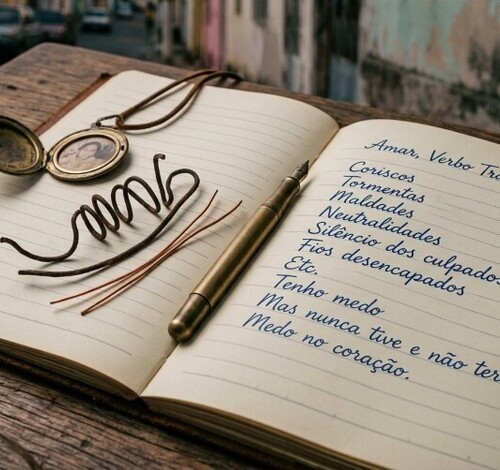 Amar, Verbo Tra
Coriscos
Tormentas
Maldades
Neutralidades
Silêncio dos culpados
Fios desencapados
Etc.
Tenho medo
Mas nunca tive e não ter
Medo no coração.